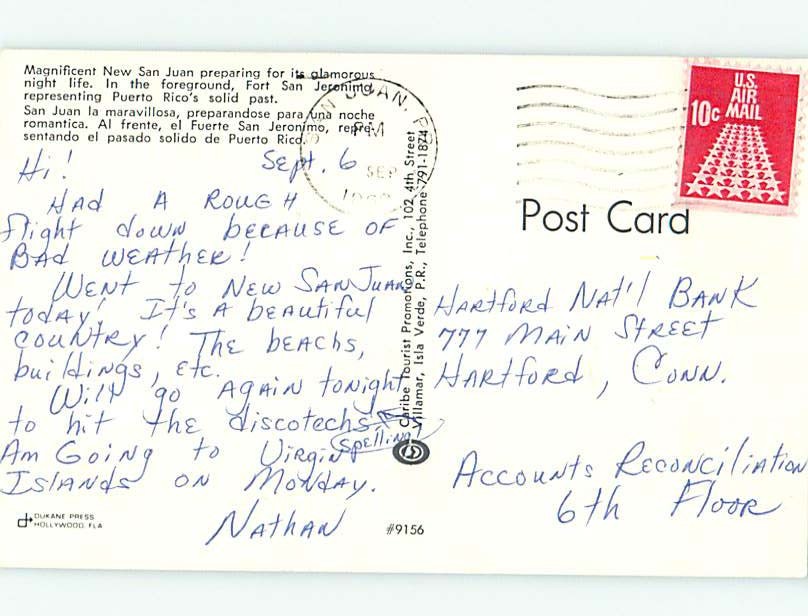 Magnificent New San Juan preparing for its glamorous
night life. In the foreground, Fort San Jeronimo,
representing Puerto Rico's solid past.
San Juan la maravillosa, preparandose para una noche
romantica. Al frente, el Fuerte San Jeronimo, repre-
sentando el pasado solido de Puerto Rico.
SAN JUAN, P.
PM
SEP
U.S.
AIR
MAIL
10c
Post Card
Hi! Sept. 6
Had A Rough
flight down because of
Bad weather!
Went to New San Juan
today! It's a beautiful
country! The beachs,
buildings, etc.
Will go again tonight
to hit the discotechs
(spelling)
Am Going to Virgin
Islands on Monday.
Nathan
Caribe Tourist Promotions, Inc., 102 4th. Street
Villamar, Isla Verde, P.R., Telephone 791-1874
Hartford Nat'l Bank
777 Main Street
Hartford, Conn.
Accounts Reconciliation
6th Floor
DUKANE PRESS
HOLLYWOOD, FLA
#9156